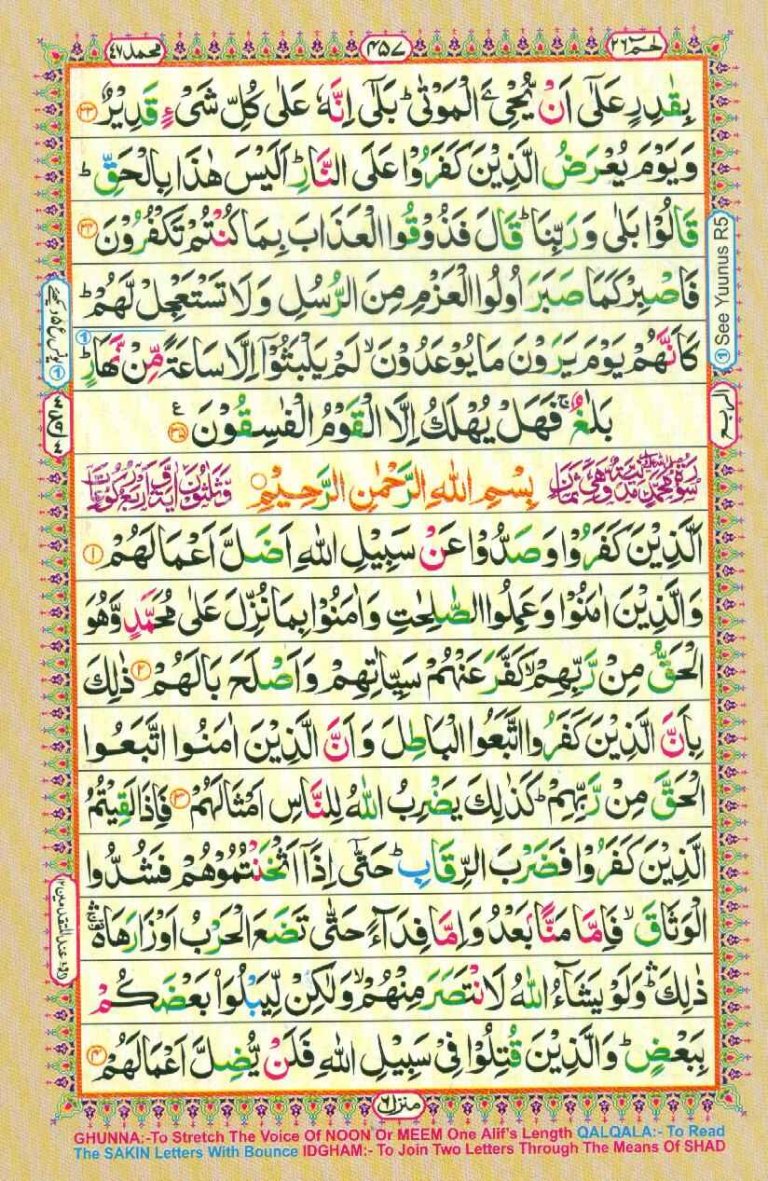 حٰمٓ ٢٦
٤٥٧
محمد ٤٧
بِقٰدِرٍ عَلٰٓى اَنْ يُّحْيِۦَ الْمَوْتٰى ؕ بَلٰٓى اِنَّهٗ عَلٰى كُلِّ شَیْءٍ قَدِيْرٌ ﴿۳۳﴾
وَيَوْمَ يُعْرَضُ الَّذِيْنَ كَفَرُوْا عَلَى النَّارِ ؕ اَلَيْسَ هٰذَا بِالْحَقِّ ؕ
قَالُوْا بَلٰى وَرَبِّنَا ؕ قَالَ فَذُوْقُوا الْعَذَابَ بِمَا كُنْتُمْ تَكْفُرُوْنَ ﴿۳۴﴾
فَاصْبِرْ كَمَا صَبَرَ اُولُوا الْعَزْمِ مِنَ الرُّسُلِ وَلَا تَسْتَعْجِلْ لَّهُمْ ؕ
كَاَنَّهُمْ يَوْمَ يَرَوْنَ مَا يُوْعَدُوْنَ ۙ لَمْ يَلْبَثُوْٓا اِلَّا سَاعَةً مِّنْ نَّهَارٍ ؕ
بَلٰغٌ ۚ فَهَلْ يُهْلَكُ اِلَّا الْقَوْمُ الْفٰسِقُوْنَ ﴿۳۵﴾ ع
① See Yuunus R5
الربع
بِسْمِ اللّٰهِ الرَّحْمٰنِ الرَّحِيْمِ
اَلَّذِيْنَ كَفَرُوْا وَصَدُّوْا عَنْ سَبِيْلِ اللّٰهِ اَضَلَّ اَعْمَالَهُمْ ﴿۱﴾
وَالَّذِيْنَ اٰمَنُوْا وَعَمِلُوا الصّٰلِحٰتِ وَاٰمَنُوْا بِمَا نُزِّلَ عَلٰى مُحَمَّدٍ وَّهُوَ
الْحَقُّ مِنْ رَّبِّهِمْ ۙ كَفَّرَ عَنْهُمْ سَيِّاٰتِهِمْ وَاَصْلَحَ بَالَهُمْ ﴿۲﴾ ذٰلِكَ
بِاَنَّ الَّذِيْنَ كَفَرُوا اتَّبَعُوا الْبَاطِلَ وَاَنَّ الَّذِيْنَ اٰمَنُوا اتَّبَعُوا
الْحَقَّ مِنْ رَّبِّهِمْ ؕ كَذٰلِكَ يَضْرِبُ اللّٰهُ لِلنَّاسِ اَمْثَالَهُمْ ﴿۳﴾ فَاِذَا لَقِيْتُمُ
الَّذِيْنَ كَفَرُوْا فَضَرْبَ الرِّقَابِ ؕ حَتّٰٓى اِذَآ اَثْخَنْتُمُوْهُمْ فَشُدُّوا
الْوَثَاقَ ۙ فَاِمَّا مَنًّۢا بَعْدُ وَاِمَّا فِدَآءً حَتّٰى تَضَعَ الْحَرْبُ اَوْزَارَهَا
ذٰلِكَ ؕ وَلَوْ يَشَآءُ اللّٰهُ لَانْتَصَرَ مِنْهُمْ ۙ وَلٰكِنْ لِّيَبْلُوَا۟ بَعْضَكُمْ
بِبَعْضٍ ؕ وَالَّذِيْنَ قُتِلُوْا فِیْ سَبِيْلِ اللّٰهِ فَلَنْ يُّضِلَّ اَعْمَالَهُمْ ﴿۴﴾
منزل ٦
GHUNNA:-To Stretch The Voice Of NOON Or MEEM One Alif's Length QALQALA:- To Read
The SAKIN Letters With Bounce IDGHAM:- To Join Two Letters Through The Means Of SHAD